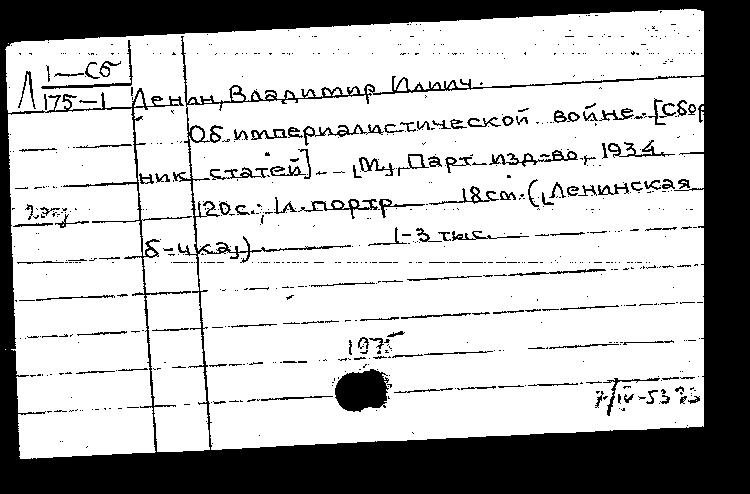 Л 1—Сб
175—1
Ленин, Владимир Ильич.
Об империалистической войне. [Сбор
ник статей]. [М.], Парт. изд-во, 1934.
2 экз
120 с.; 1 л. портр. 18 см. ([Ленинская
б-чка]). 1-3 тыс.
1975
7/IV-53